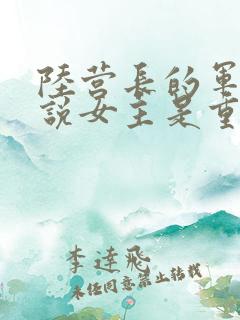 陸营長的軍
說女主是重
李達飛
未经同意禁止转载